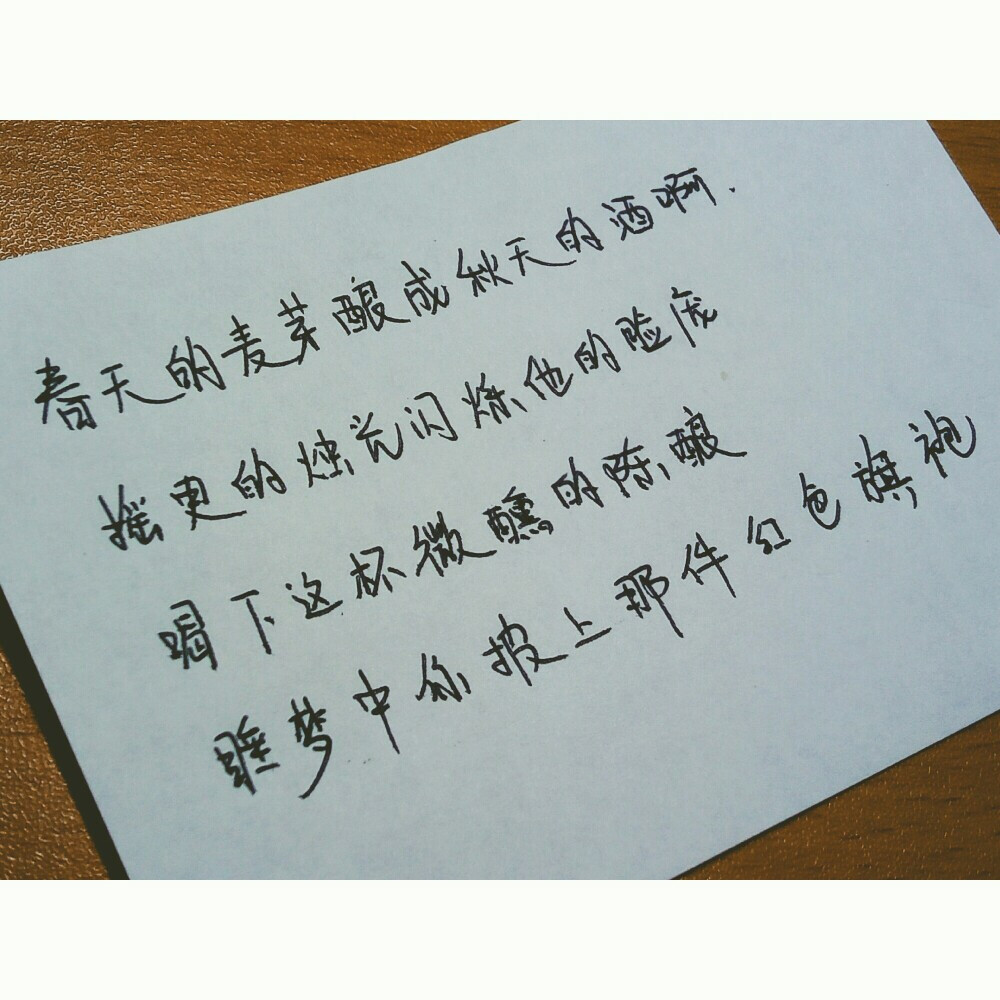 春天的麦芽酿成秋天的酒啊.
摇曳的烛光闪烁他的脸庞
喝下这杯微醺的陈酿
睡梦中你披上那件红色旗袍